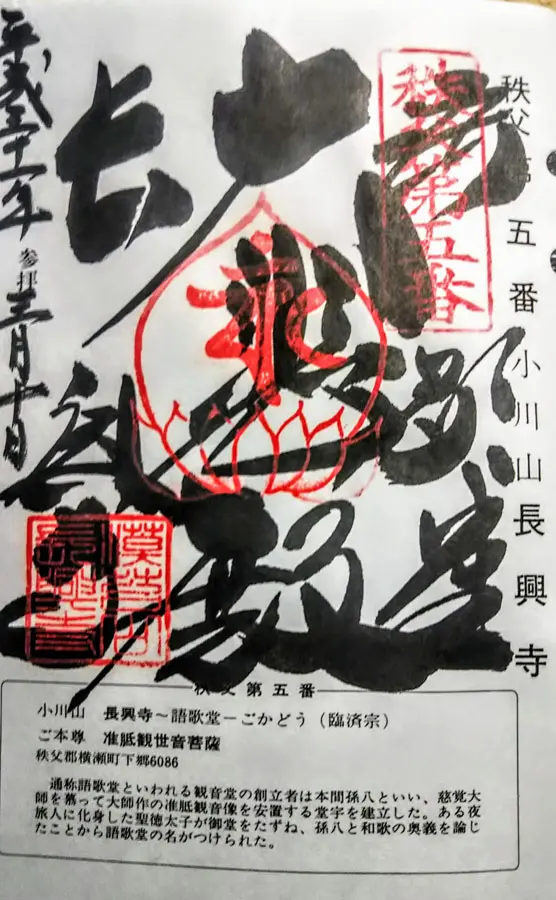 秩父 第 五 番 小川山 長興寺
秩父第五番
奉
語歌堂
大
准
殿
長
興
寺
平成三十一年 参拝 三月十日
秩父第五番
小川山　長興寺～語歌堂－ごかどう（臨済宗）
ご本尊　准胝観世音菩薩
秩父郡横瀬町下郷6086
通称語歌堂といわれる観音堂の創立者は本間孫八といい、慈覚大
師を慕って大師作の准胝観音像を安置する堂宇を建立した。ある夜
旅人に化身した聖徳太子が御堂をたずね、孫八と和歌の奥義を論じ
たことから語歌堂の名がつけられた。